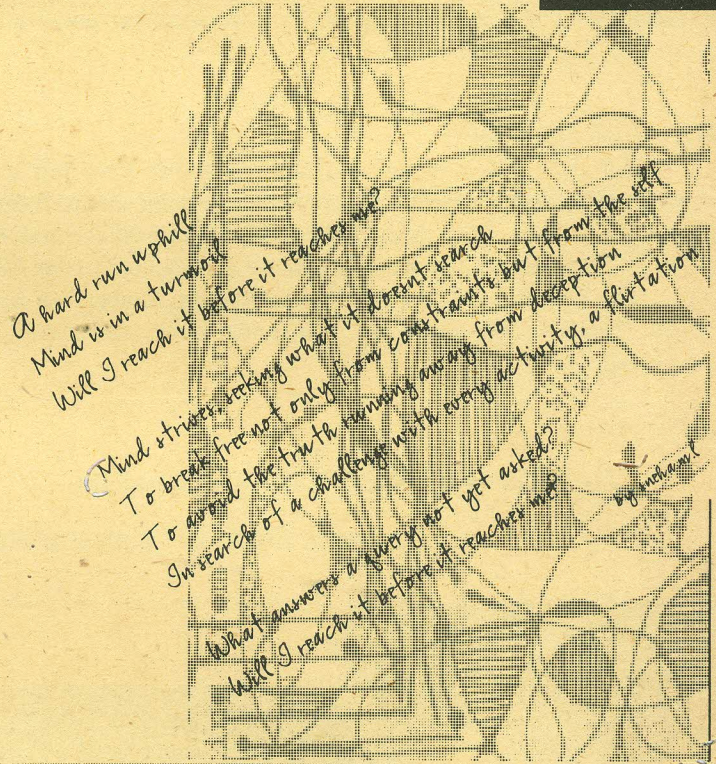 A hard run uphill
Mind is in a turmoil
Will I reach it before it reaches me?
Mind strives, seeking what it doesnt search
To break free not only from constraints but from the self
To avoid the truth running away from deception
In search of a challenge with every activity, a flirtation
What answers a query not yet asked?
Will I reach it before it reaches me?
by snehaml